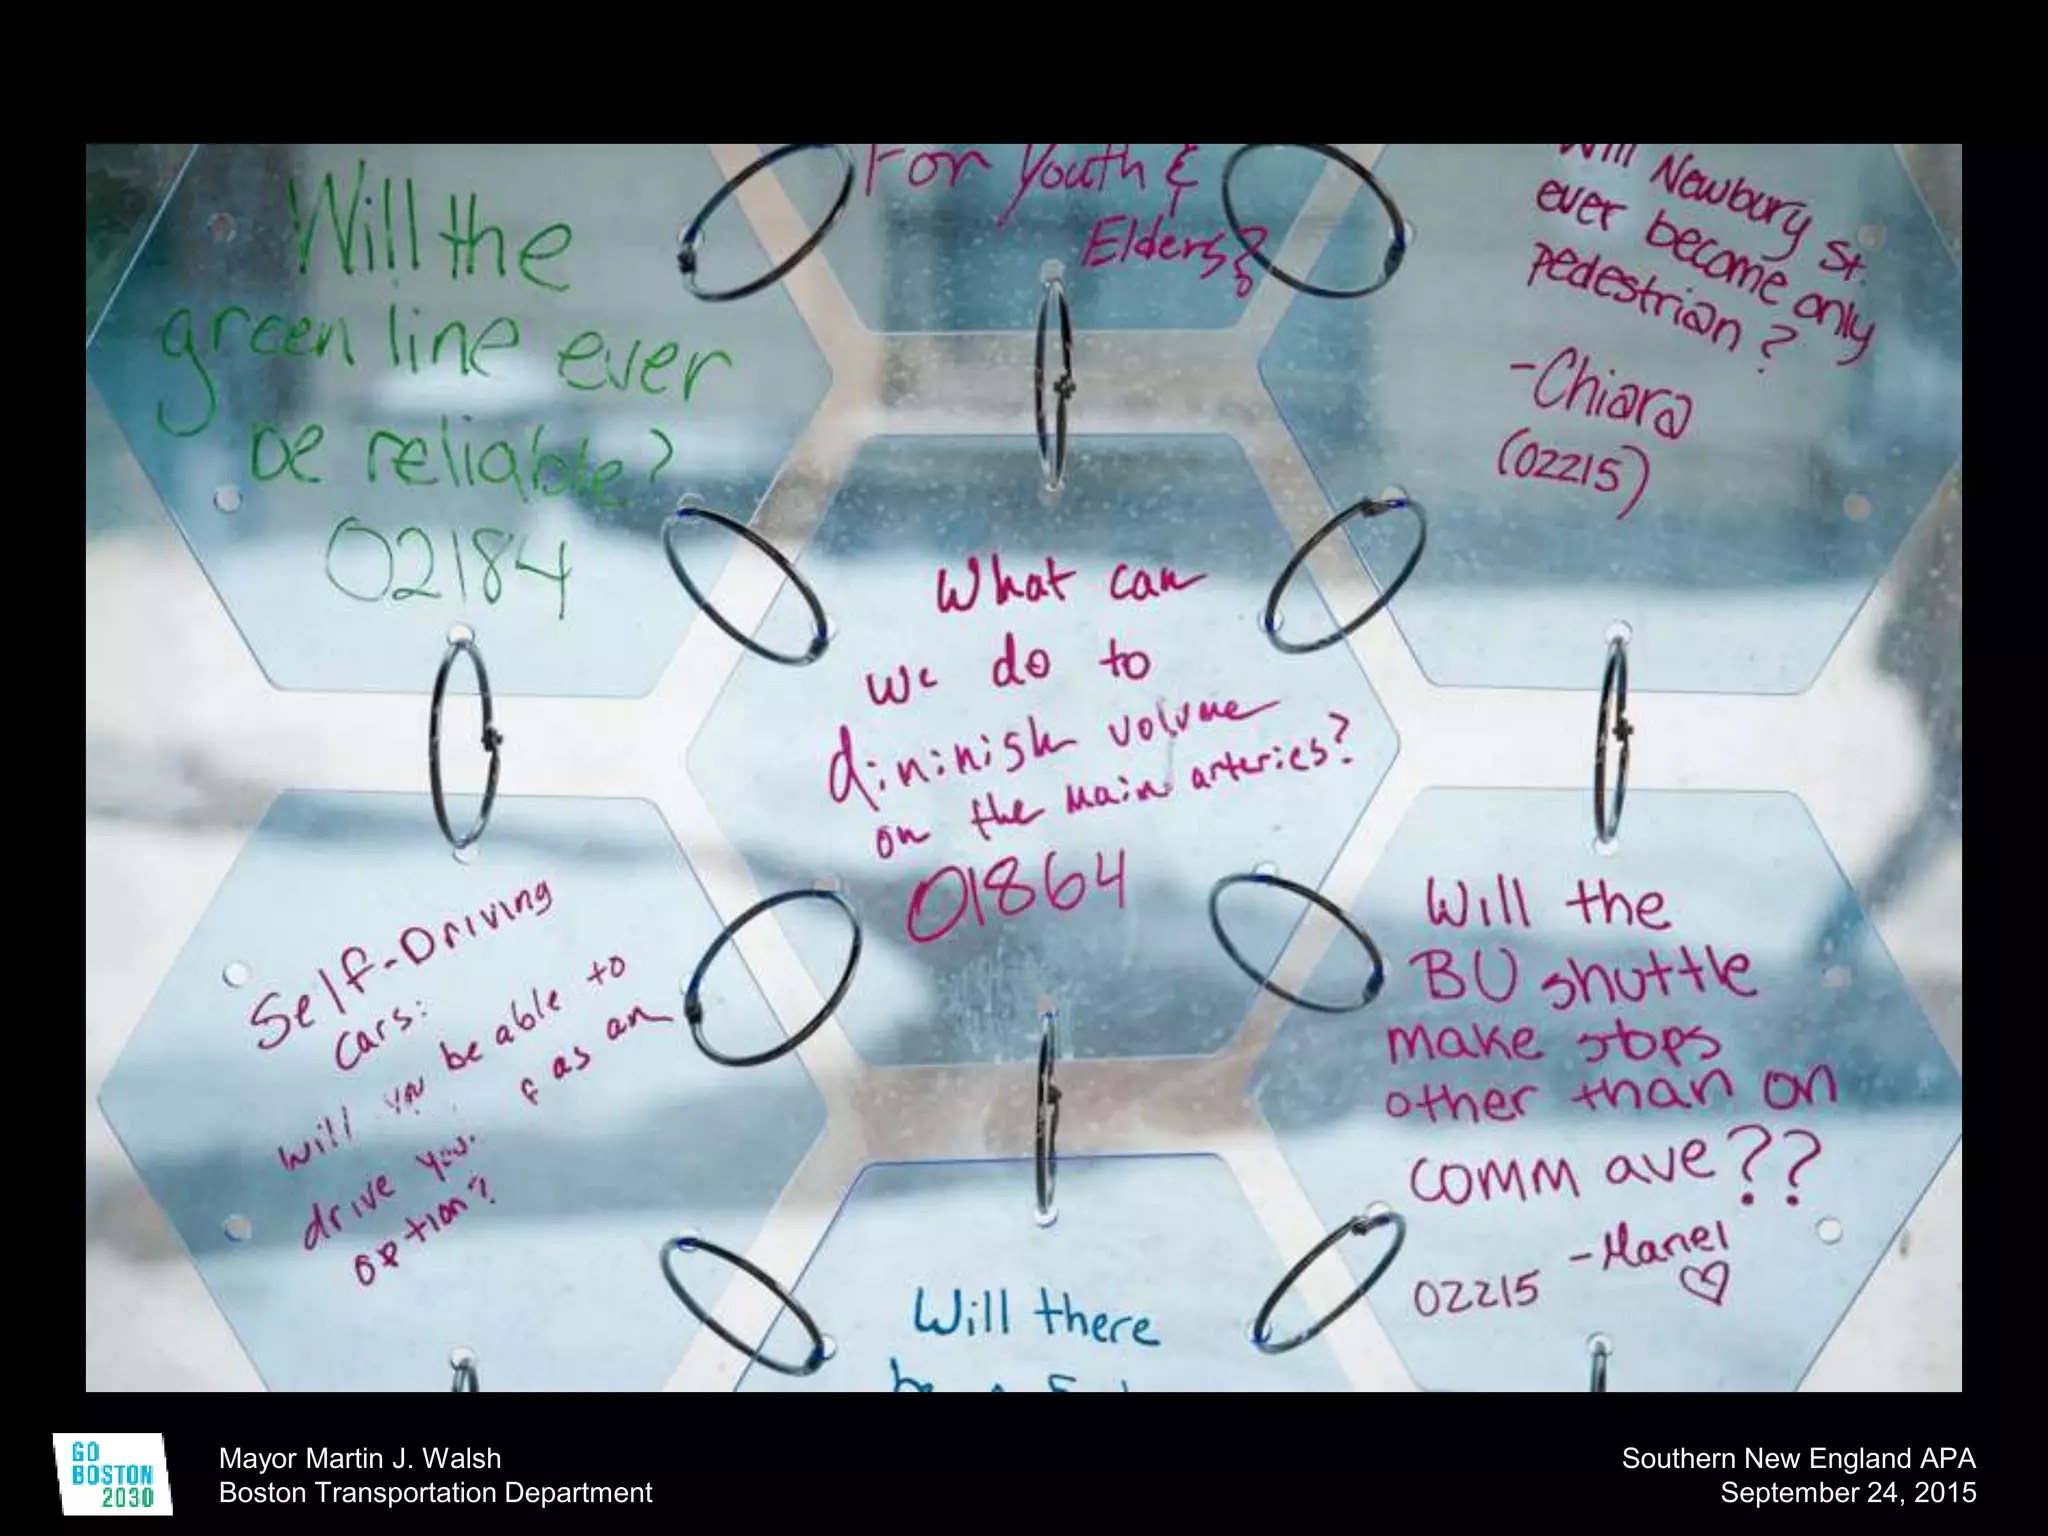 Will the
green line ever
be reliable?
02184
For Youth &
Elders?
Will Newbury St.
ever become only
pedestrian?
-Chiara
(02215)
What can
we do to
diminish volume
on the main arteries?
01864
Self-Driving
Cars:
will you be able to
drive as an
option?
Will the
BU shuttle
make stops
other than on
comm ave??
-Manel
02215
Will there
GO
BOSTON
2030
Mayor Martin J. Walsh
Boston Transportation Department
Southern New England APA
September 24, 2015